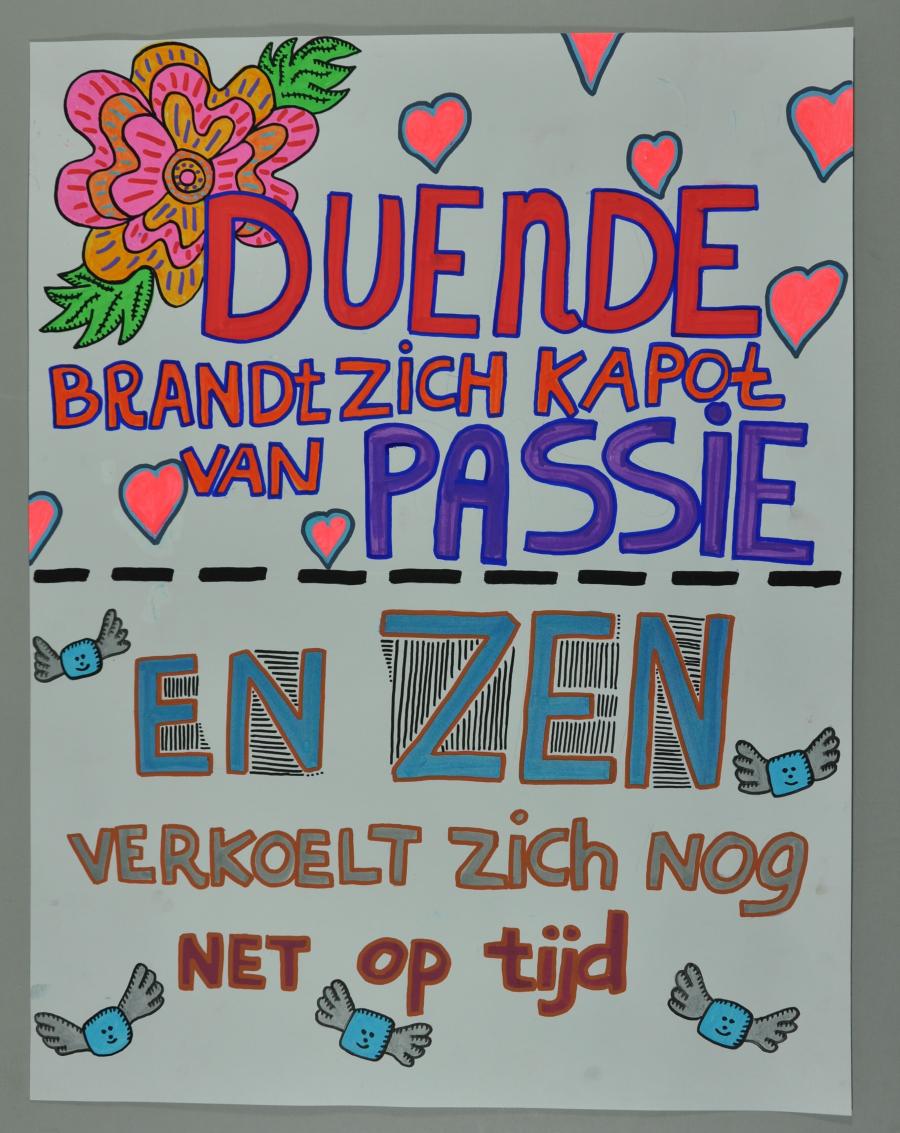 DUENDE
BRANDt ZiCH KAPOt
VAN PASSiE
EN ZEN
VERKOELT ZiCh NOg
NET op tijd